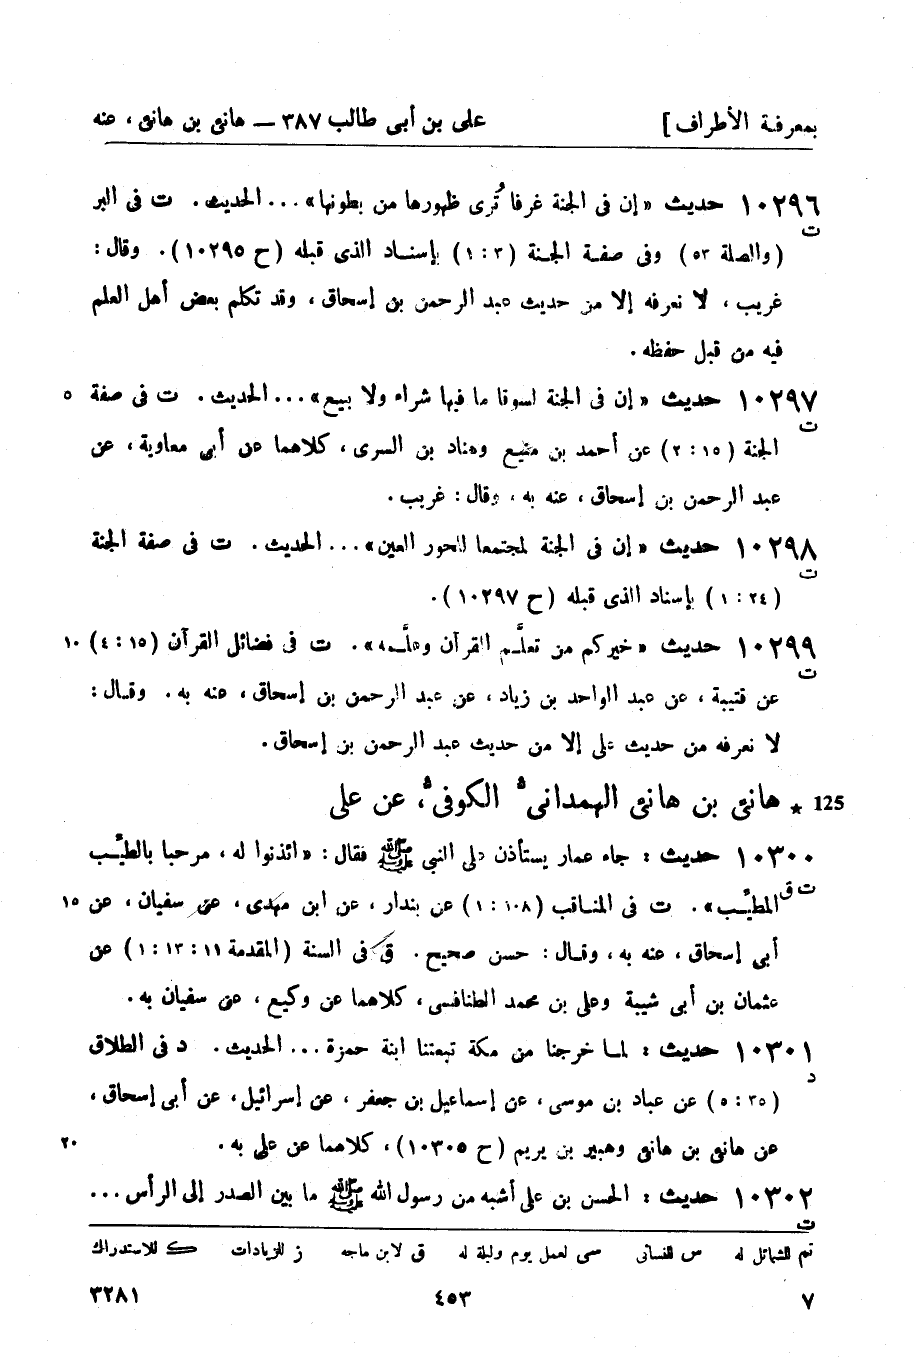 بمعرفة الأطراف] على بن أبى طالب ٣٨٧ ــ هانئ بن هانئ ، عنه
١٠٢٩٦ حديث «إن فى الجنة غرفا تُرى ظهورها من بطونها» ... الحديث . ت فى البر
ت
(والصلة ٥٣) وفى صفة الجنة (٣ : ١) بإسناد الذى قبله (ح ١٠٢٩٥) . وقال :
غريب ، لا نعرفه إلا من حديث عبد الرحمن بن إسحاق ، وقد تكلم بعض أهل العلم
فيه من قبل حفظه .
١٠٢٩٧ حديث «إن فى الجنة لسوقا ما فيها شراء ولا بيع» ... الحديث . ت فى صفة ٥
ت
الجنة (١٥ : ٢) عن أحمد بن منيع وهناد بن السرى ، كلاهما عن أبى معاوية ، عن
عبد الرحمن بن إسحاق ، عنه به ، وقال : غريب .
١٠٢٩٨ حديث «إن فى الجنة لمجتمعا للحور العين» ... الحديث . ت فى صفة الجنة
ت
(٢٤ : ١) بإسناد الذى قبله (ح ١٠٢٩٧) .
١٠٢٩٩ حديث «خيركم من تعلَّم القرآن وعلَّمه» . ت فى فضائل القرآن (١٥ : ٤) ١٠
ت
عن قتيبة ، عن عبد الواحد بن زياد ، عن عبد الرحمن بن إسحاق ، عنه به . وقال :
لا نعرفه من حديث على إلا من حديث عبد الرحمن بن إسحاق .
125 ٭ هانئ بن هانئ الهمدانى الكوفى ، عن على
١٠٣٠٠ حديث : جاء عمار يستأذن على النبى ﷺ فقال : «ائذنوا له ، مرحبا بالطيِّب
ت ق
المطيَّب» . ت فى المناقب (١٠٨ : ١) عن بندار ، عن ابن مهدى ، عن سفيان ، عن ١٥
أبى إسحاق ، عنه به ، وقال : حسن صحيح . ق فى السنة (المقدمة ١١ : ١٣ : ١) عن
عثمان بن أبى شيبة وعلى بن محمد الطنافسى ، كلاهما عن وكيع ، عن سفيان به .
١٠٣٠١ حديث : لما خرجنا من مكة تبعتنا ابنة حمزة ... الحديث . د فى الطلاق
د
(٣٥ : ٥) عن عباد بن موسى ، عن إسماعيل بن جعفر ، عن إسرائيل ، عن أبى إسحاق ،
عن هانئ بن هانئ وهبير بن يريم (ح ١٠٣٠٥) ، كلاهما عن على به . ٢٠
١٠٣٠٢ حديث : الحسن بن على أشبه من رسول الله ﷺ ما بين الصدر إلى الرأس ...
ت
تم للشمائل له س للنسائى سى لعمل يوم وليلة له ق لابن ماجه ز للزيادات ك للاستدراك
٧ ٤٥٣ ٣٢٨١